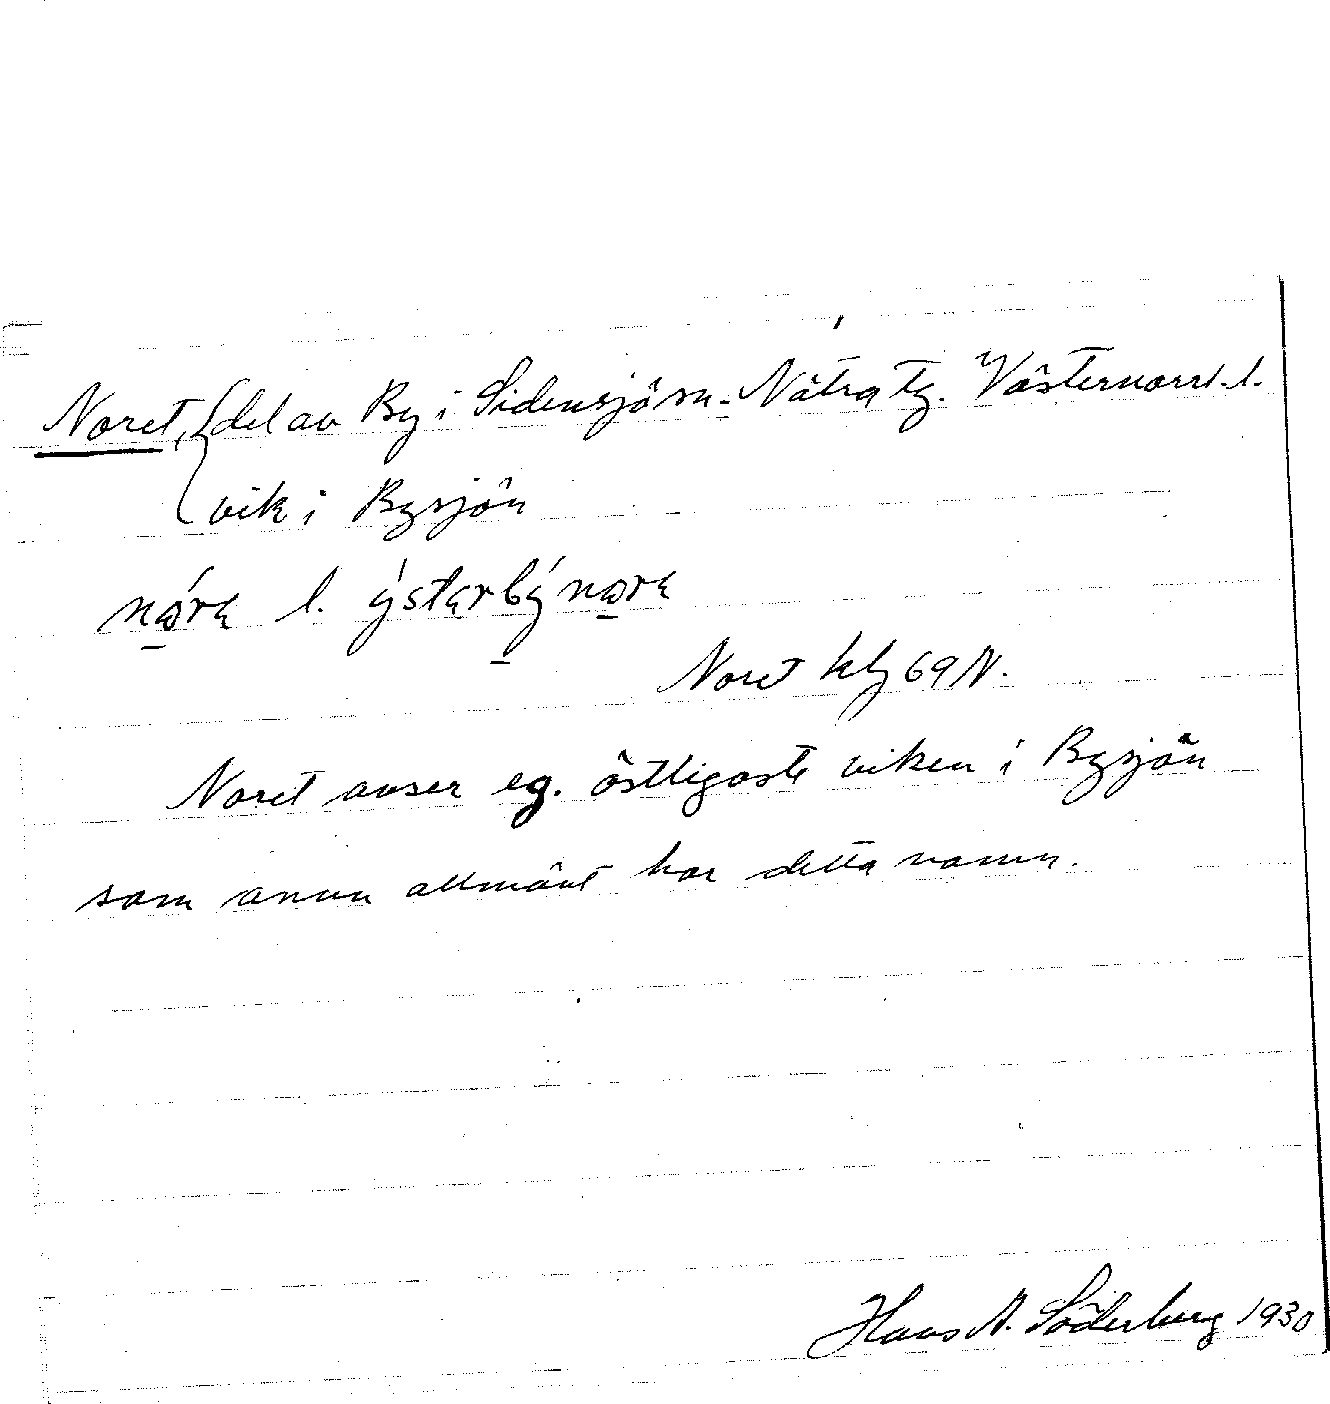 Noret, { del av By i Sidensjö sn. Nätra tg. Västernorrl. l.
vik i Bysjön
nǫ́rɐ l. ýstɐrbýnǫrɐ
Noret kbl 69 N.
Noret avser eg. östligaste viken i Bysjön
som ännu allmänt har detta namn.
Hans A. Söderberg 1930